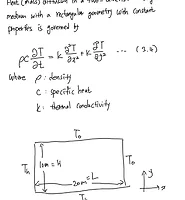 Heat (mass) diffusion in a two-dimensional
medium with a rectangular geometry with constant
properties is governed by
ρC ∂T/∂t = k ∂²T/∂x² + k ∂²T/∂y² ... (3.4)
where ρ : density
C : specific heat
k : thermal conductivity
T₀
Th 10m = H T₀
20m = L
y
x